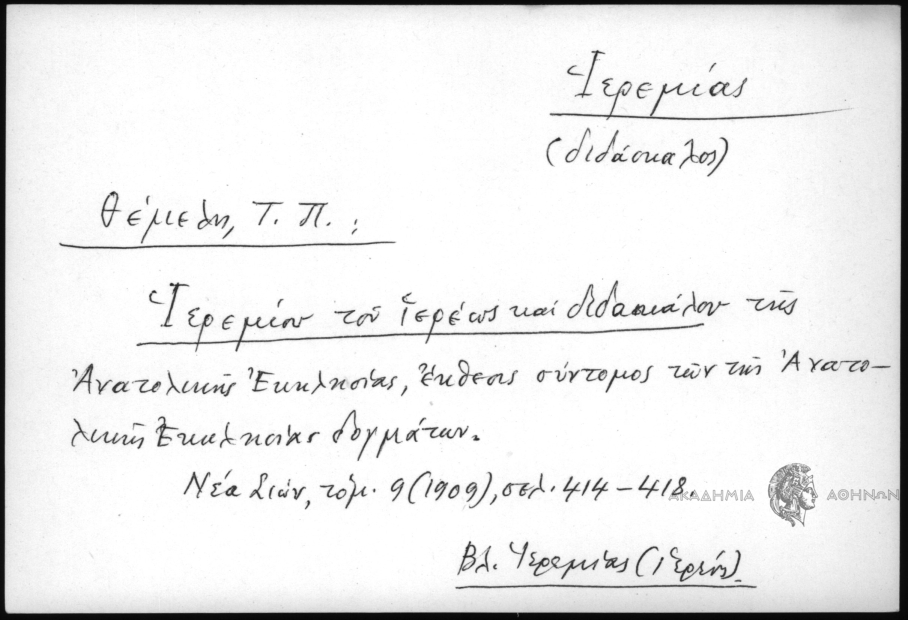 Ἱερεμίας
(διδάσκαλος)
Θέμελη, Τ. Π. :
Ἱερεμίου τοῦ ἱερέως καὶ διδασκάλου τῆς
Ἀνατολικῆς Ἐκκλησίας, ἔκθεσις σύντομος τῶν τῆς Ἀνατο-
λικῆς Ἐκκλησίας δογμάτων.
Νέα Σιών, τόμ. 9 (1909), σελ. 414-418.
ΑΚΑΔΗΜΙΑ ΑΘΗΝΩΝ
Βλ. Ἱερεμίας (Ἱερεύς).